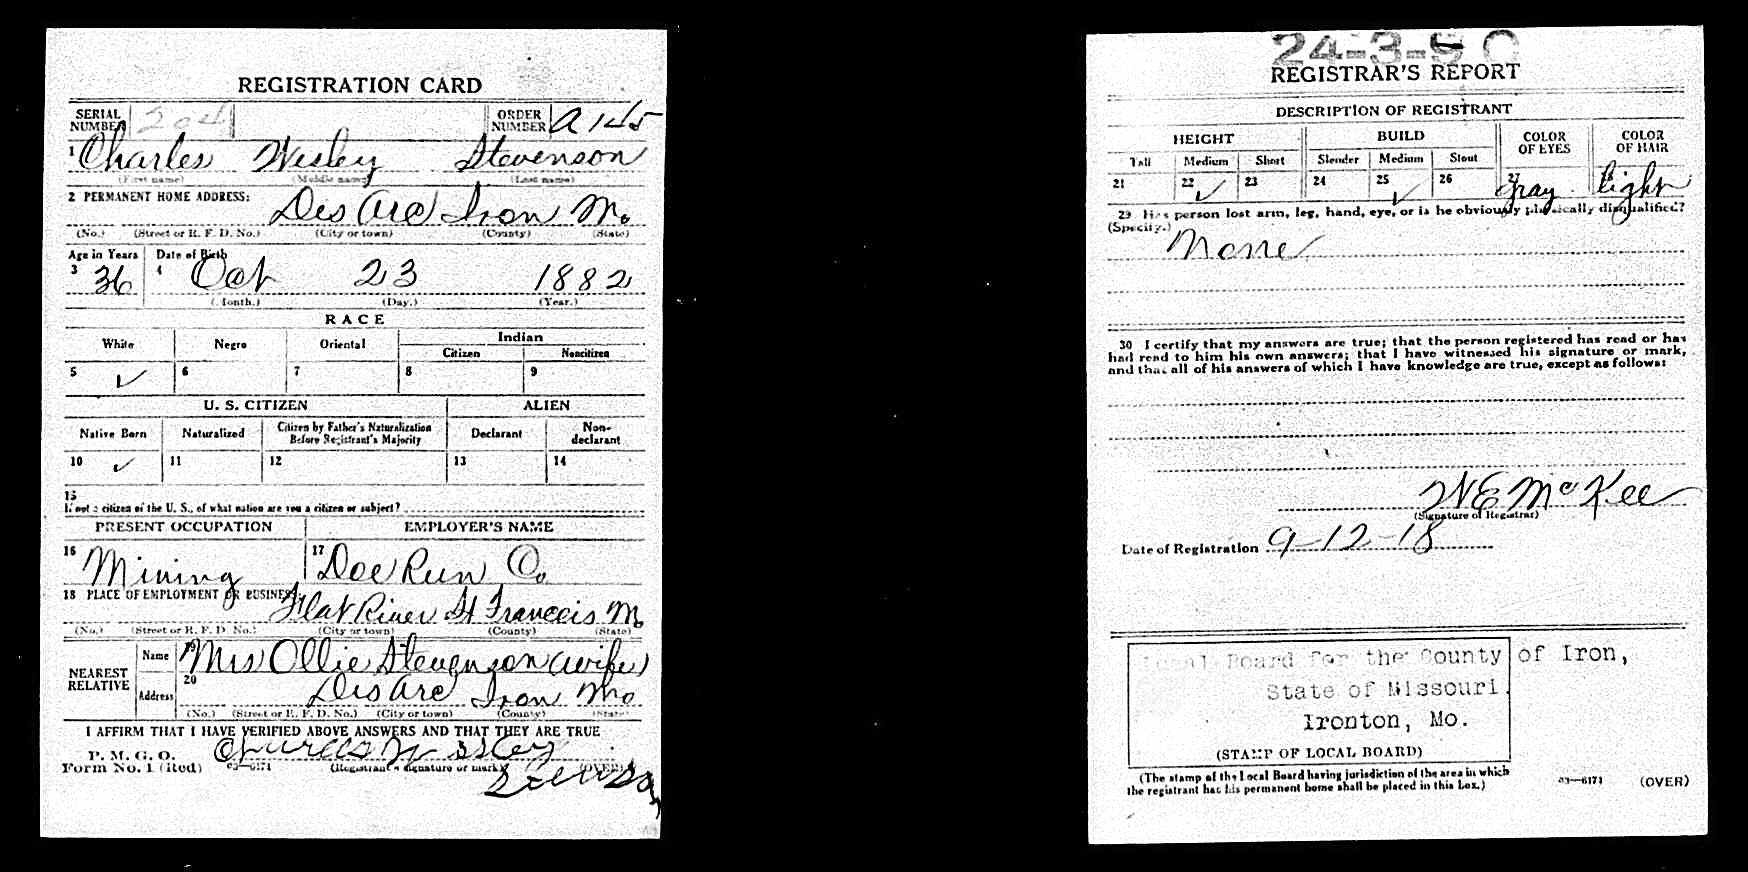 REGISTRATION CARD
SERIAL NUMBER 204 ORDER NUMBER A 145
1 Charles Wesley Stevenson
(First name) (Middle name) (Last name)
2 PERMANENT HOME ADDRESS: Des Arc Iron Mo
(No.) (Street or R. F. D. No.) (City or town) (County) (State)
Age in Years Date of Birth
3 36 4 Oct 23 1882
(Month.) (Day.) (Year.)
RACE
White Negro Oriental Indian
Citizen Noncitizen
5 ✓ 6 7 8 9
U. S. CITIZEN ALIEN
Native Born Naturalized Citizen by Father's Naturalization Before Registrant's Majority Declarant Non-declarant
10 ✓ 11 12 13 14
15
If not a citizen of the U. S., of what nation are you a citizen or subject?
PRESENT OCCUPATION EMPLOYER'S NAME
16 Mining 17 Doe Run Co
18 PLACE OF EMPLOYMENT OR BUSINESS Flat River St Francois Mo
(No.) (Street or R. F. D. No.) (City or town) (County) (State)
NEAREST RELATIVE Name 19 Mrs Ollie Stevenson (wife)
Address 20 Des Arc Iron Mo
(No.) (Street or R. F. D. No.) (City or town) (County) (State)
I AFFIRM THAT I HAVE VERIFIED ABOVE ANSWERS AND THAT THEY ARE TRUE
P. M. G. O.
Form No. 1 (Red) 03—6171 (Registrant's signature or mark) (OVER)
Charles Wesley
24-3-9 C
REGISTRAR'S REPORT
DESCRIPTION OF REGISTRANT
HEIGHT BUILD COLOR OF EYES COLOR OF HAIR
Tall Medium Short Slender Medium Stout
21 22 ✓ 23 24 25 ✓ 26 27 gray light
29 Has person lost arm, leg, hand, eye, or is he obviously physically disqualified?
(Specify.) None
30 I certify that my answers are true; that the person registered has read or has
had read to him his own answers; that I have witnessed his signature or mark,
and that all of his answers of which I have knowledge are true, except as follows:
W E McKee
(Signature of Registrar)
Date of Registration 9-12-18
Local Board for the County of Iron,
State of Missouri
Ironton, Mo.
(STAMP OF LOCAL BOARD)
(The stamp of the Local Board having jurisdiction of the area in which
the registrant has his permanent home shall be placed in this box.)
03—6171 (OVER)